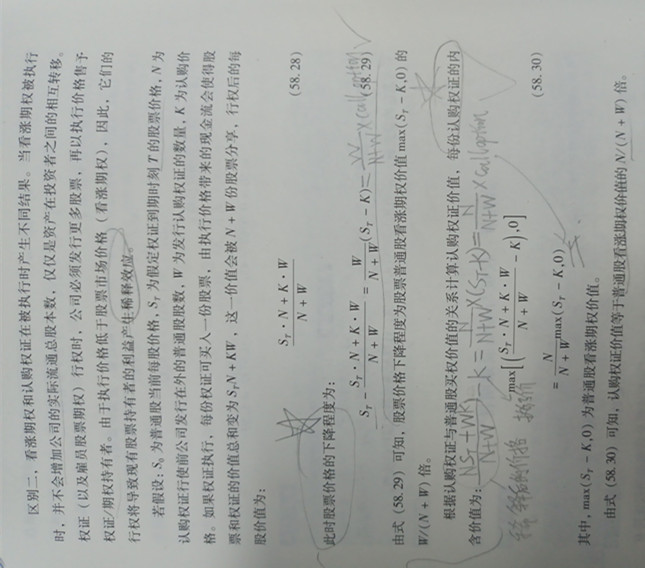 区别二，看涨期权和认购权证在被执行时产生不同结果。当看涨期权被执行
时，并不会增加公司的实际流通总股本数，仅仅是资产在投资者之间的相互转移。
权证（以及雇员股票期权）行权时，公司必须发行更多股票，再以执行价格售予
权证/期权持有者。由于执行价格低于股票市场价格（看涨期权），因此，它们的
行权将导致现有股票持有者的利益产生稀释效应。
若假设：S₀ 为普通股当前每股价格，S_T 为假定权证到期时刻 T 的股票价格，N 为
认购权证行使前公司发行在外的普通股股数，W 为发行认购权证的数量，K 为认购价
格。如果权证执行，每份权证可买入一份股票，由执行价格带来的现金流会使得股
票和权证的价值总和变为 S_T N + KW，这一价值会被 N + W 份股票分享，行权后的每
股价值为：
(S_T · N + K · W) / (N + W) (58.28)
此时股票价格的下降程度为：
S_T − (S_T · N + K · W) / (N + W) = W / (N + W) (S_T − K) = W / (N+W) × call option (58.29)
由式（58.29）可知，股票价格下降程度为股票普通股看涨期权价值 max(S_T − K,0) 的
W/(N + W) 倍。
根据认购权证与普通股买权价值的关系计算认购权证价值，每份认购权证的内
含价值为： (NS_T + WK) / (N+W) − K = N / (N+W) × (S_T − K) = N / (N+W) × call option
稀释后的价格
max[((S_T · N + K · W) / (N + W) − K),0]
= N / (N + W) max(S_T − K,0) (58.30)
其中，max(S_T − K,0) 为普通股看涨期权价值。
由式（58.30）可知，认购权证价值等于普通股看涨期权价值的 N/(N + W) 倍。